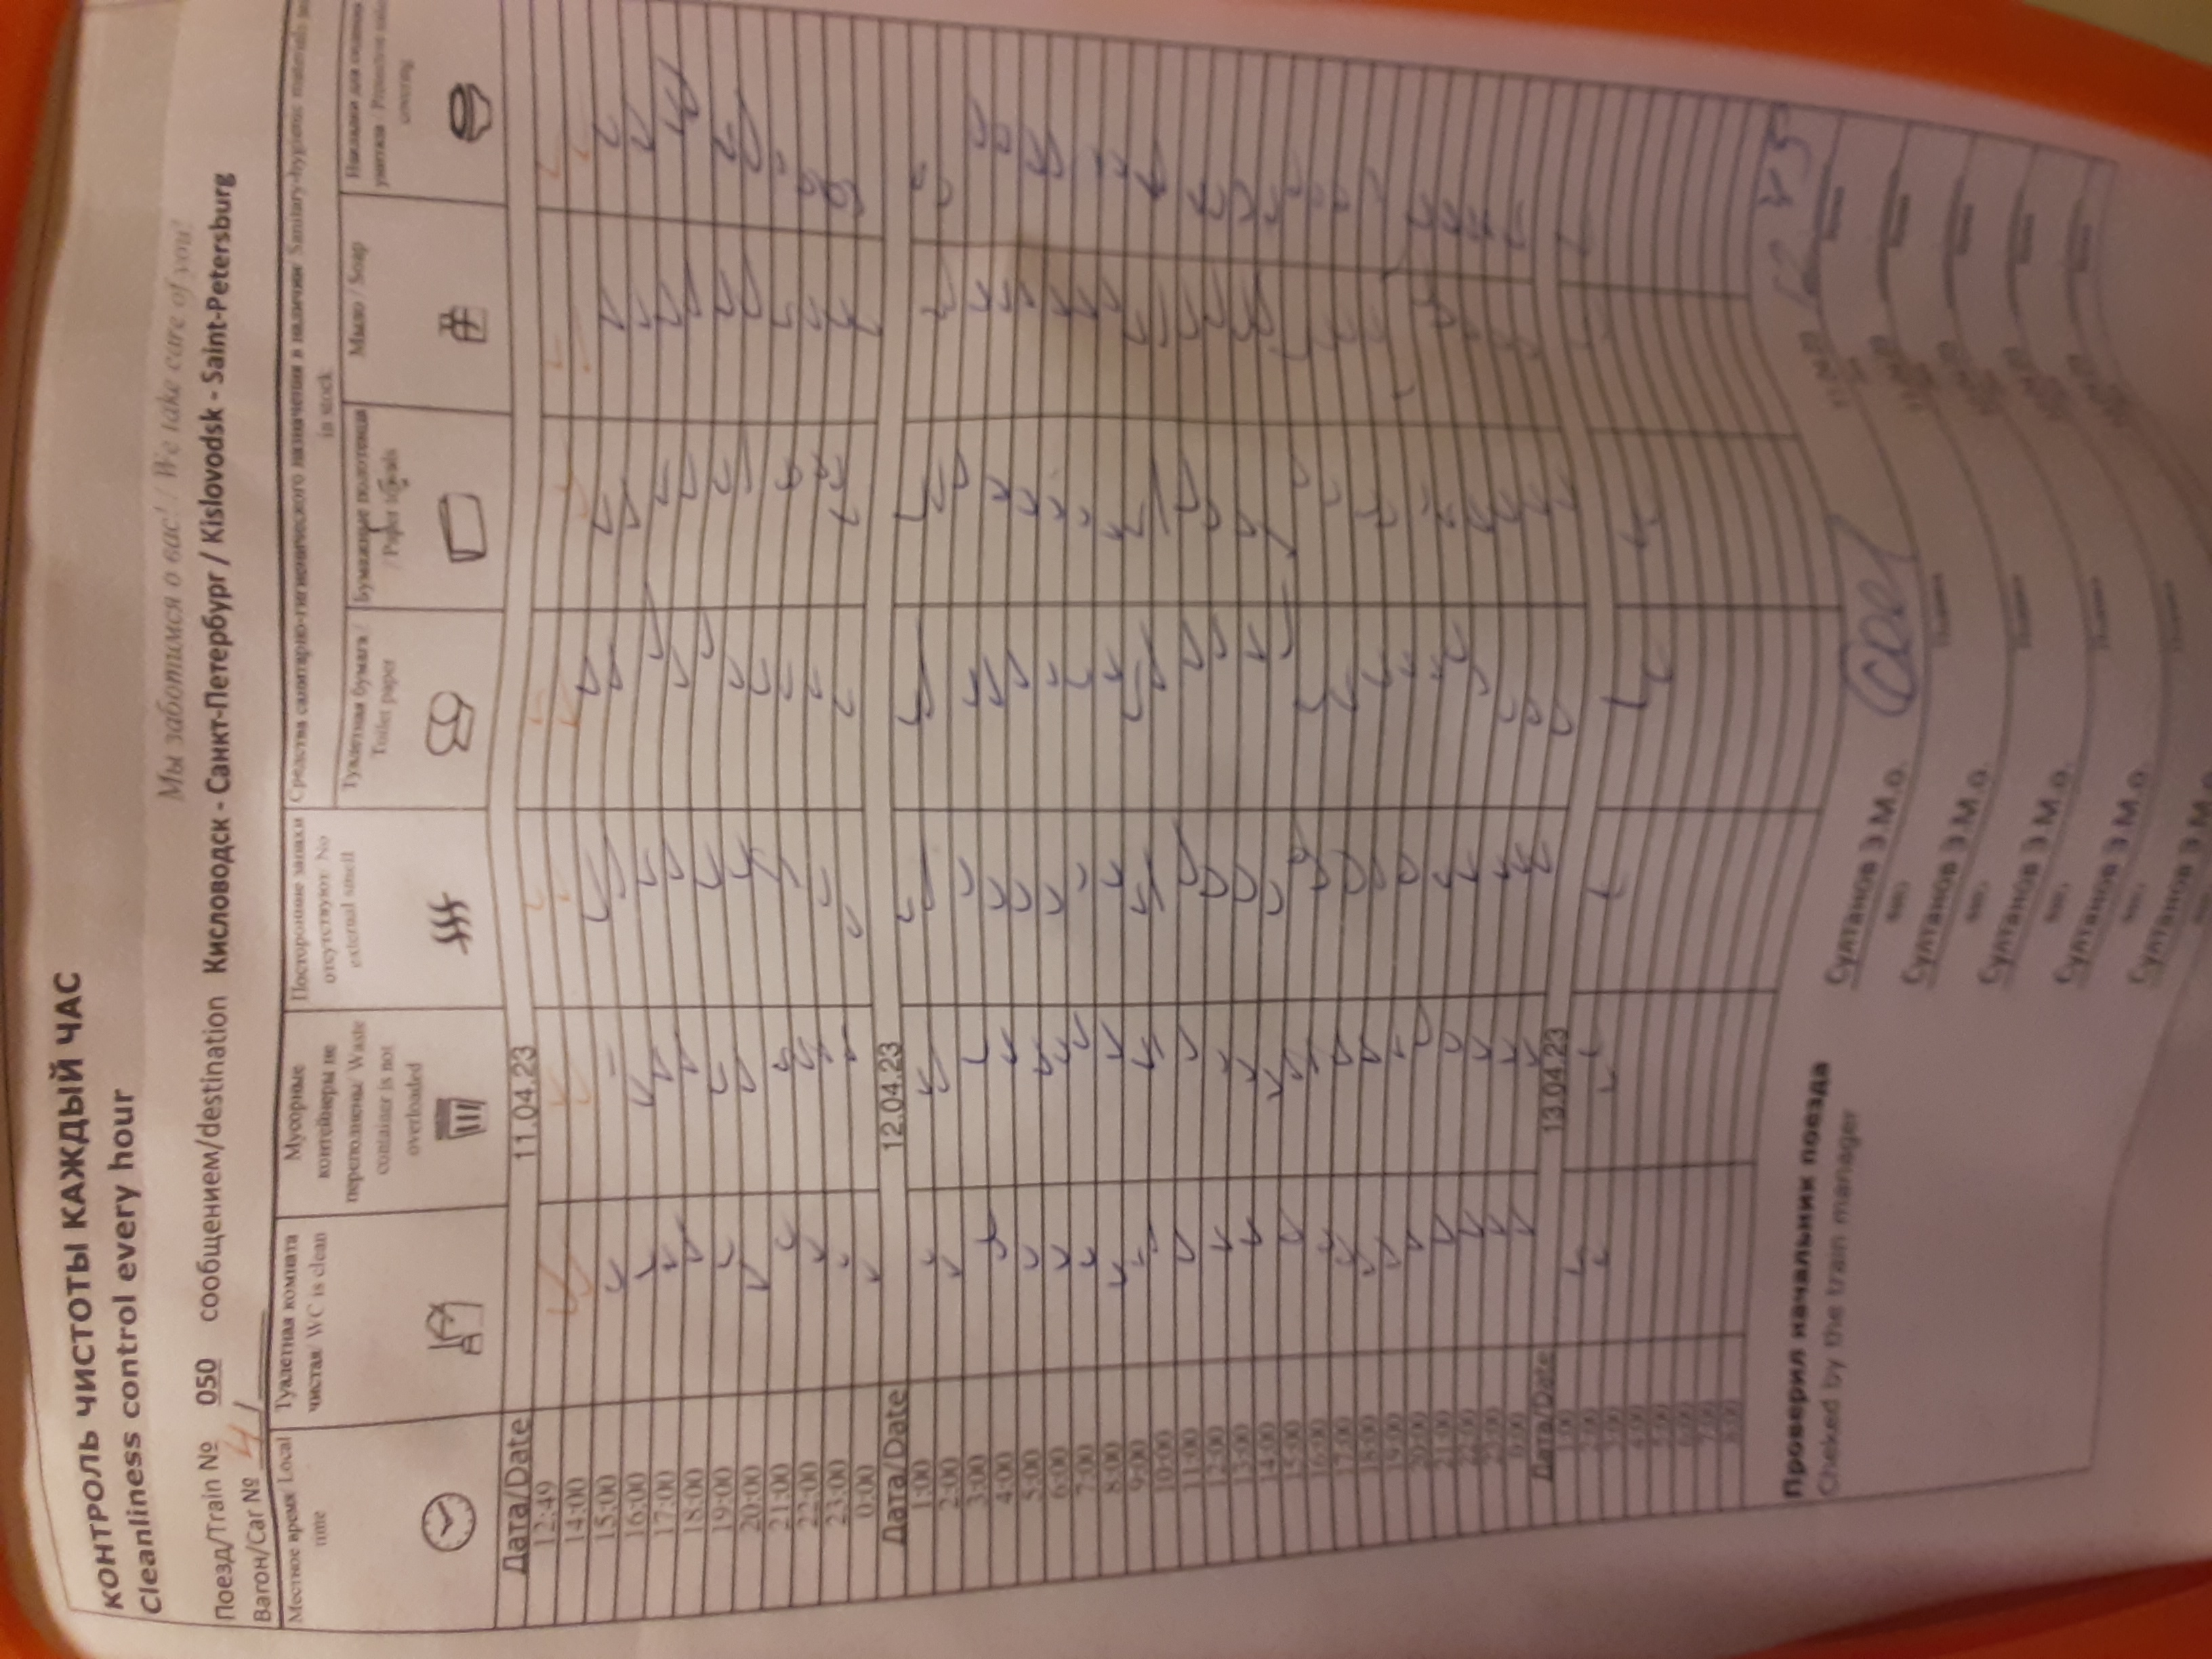 Мы заботимся о вас! / We take care of you!
КОНТРОЛЬ ЧИСТОТЫ КАЖДЫЙ ЧАС
Cleanliness control every hour
Поезд/Train № 050 сообщением/destination Кисловодск - Санкт-Петербург / Kislovodsk - Saint-Petersburg
Вагон/Car № 4
Местное время/ Local time
Туалетная комната чистая/ WC is clean
Мусорные контейнеры не переполнены/ Waste container is not overloaded
Посторонние запахи отсутствуют/ No external smell
Средства санитарно-гигиенического назначения в наличии/ Sanitary-hygienic materials
in stock
Туалетная бумага / Toilet paper
Бумажные полотенца / Paper towels
Мыло / Soap
Накладки для сидения унитаза / Protective
covering
Дата/Date 11.04.23
12:49
14:00
15:00
16:00
17:00
18:00
19:00
20:00
21:00
22:00
23:00
0:00
Дата/Date 12.04.23
1:00
2:00
3:00
4:00
5:00
6:00
7:00
8:00
9:00
10:00
11:00
12:00
13:00
14:00
15:00
16:00
17:00
18:00
19:00
20:00
21:00
22:00
23:00
0:00
Дата/Date 13.04.23
1:00
2:00
3:00
4:00
5:00
6:00
7:00
8:00
Проверил начальник поезда
Cheked by the train manager
Султанов Э.М.о.
Султанов Э.М.о.
Султанов Э.М.о.
Султанов Э.М.о.
Султанов Э.М.о.